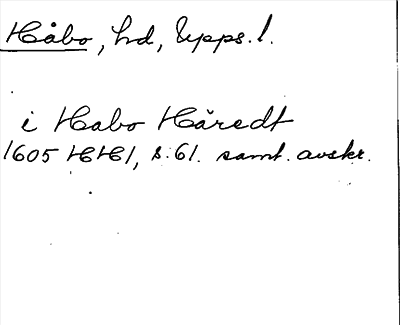 Håbo, hd, Upps. l.
i Habo Häredt
1605 HH 1, s. 61. samt. avskr.